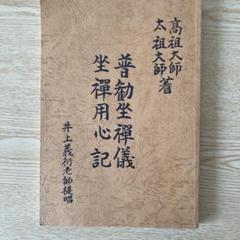 高祖大師
太祖大師著
普勧坐禪儀
坐禪用心記
井上義衍老師提唱